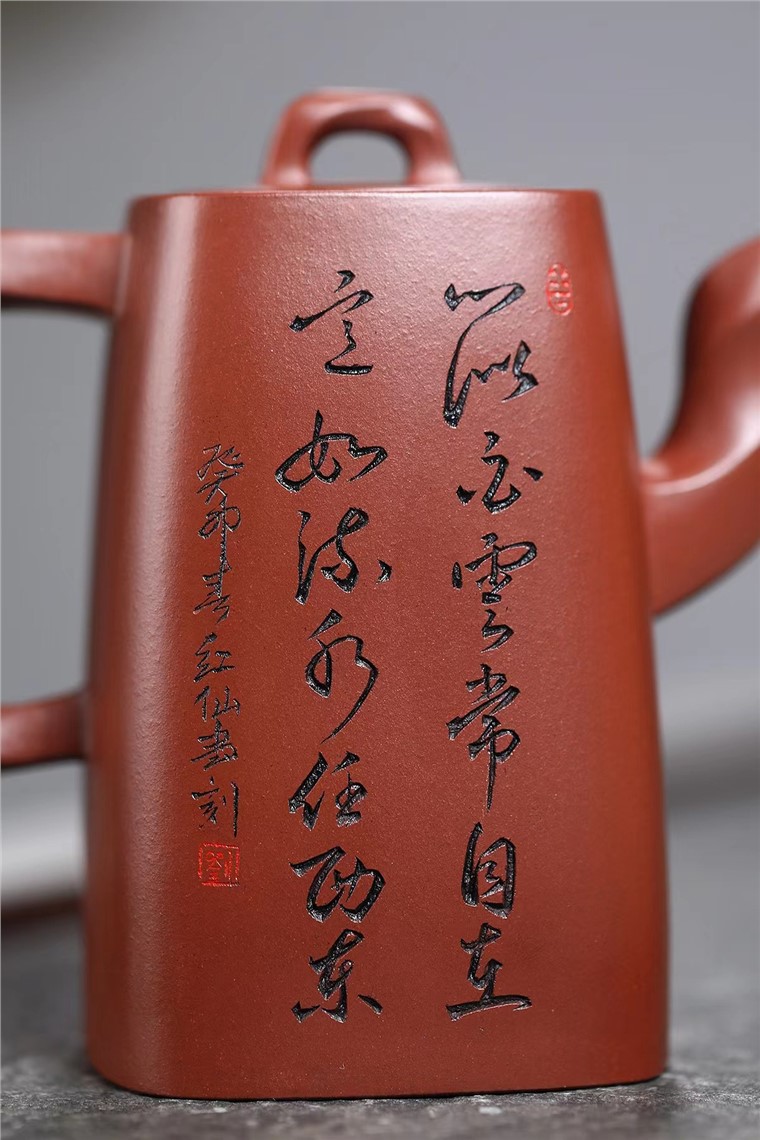 心似白雲常自在
意如流水任西東
癸卯春红仙書刻